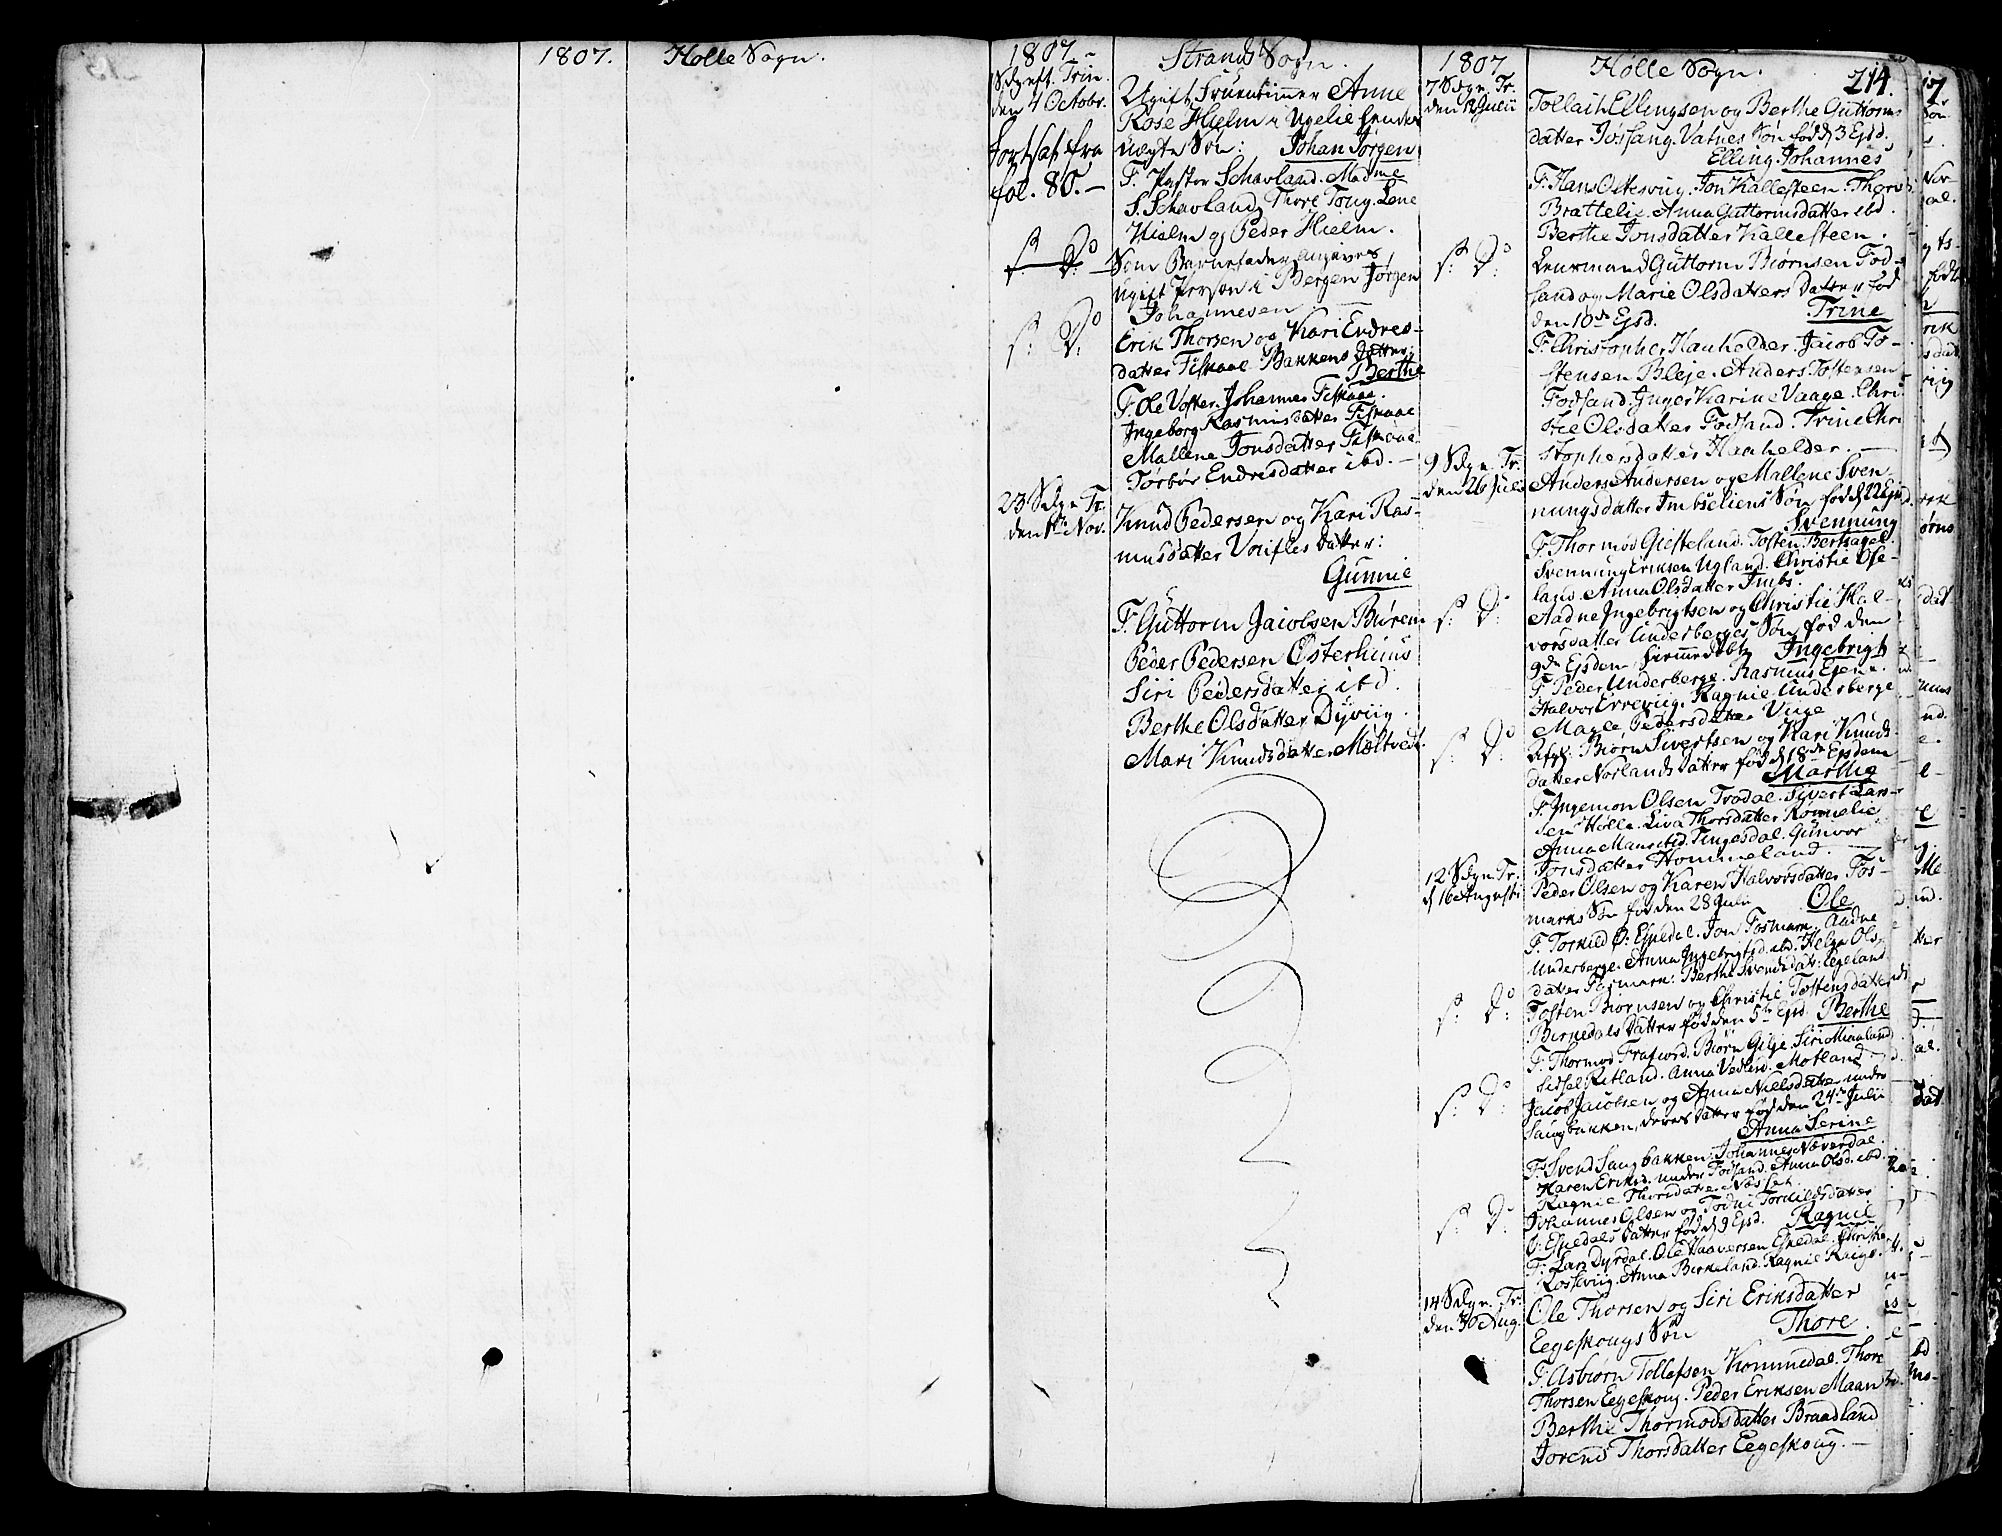 1807.
Holle Sogn.
1807 -
Strand Sogn.
den 4 Octobr.
Fortsat fra
fol. 80. -
Ugift Fruentimer Anne
Rose Hielm
uægte Søn: Johan Jørgen
F. Pastor Schavland. Madme
S. Schavland, Thore Tong. Lene
Hielm og Peder Hielm.
Som Barnefader angives
ugift Person i Bergen Jørgen
Johannesen
s: D:
Erik Thorsen og Kari Endres-
datter Fiskaae Bakkens datter:
Berthe
F. Ole Voster. Johannes Fiskaae.
Ingeborg Rasmusdatter Fiskaae
Mallene Jonsdatter Fiskaae
Torbør Endresdatter ibd. -
23 S. Dgn. Tr.
den 1te Nov.
Knud Pedersen og Kari Ras-
musdatter datter:
Gunnie
F. Guttorm Jacobsen Buren
Peder Pedersen Østerhuus
Siri Pedersdatter ibd.
Berthe Olsdatter Dyviig.
Mari Knudsdatter Moltvedt.
1807
Holle Sogn.
214.
7 S. Dgn. Tr.
den 12 Julii
Tollach Ellingsen og Berthe Guttorms
datter Jøssang. Vatnes Søn fød d 3 Ejsd.
Elling Johannes
F. Hans Ottesviig. Jon Kallesteen. Thor
Brattelie. Anna Guttormsdatter ibd.
Berthe Jonsdatter Kallesteen.
s: D:
Lensmand Guttorm Biørnsen Fod-
sand og Marie Olsdatters datter fød
den 10de Ejsd. Trine
F. Christopher Haahelder. Jacob To-
stensen Bleje. Anders Tostensen
Fodsand. Inger Karine Vaage. Chri-
stie Olsdatter Fodsand. Trine Chri
stophersdatter Haahelder. -
9 S. Dgn. Tr.
den 26 Julii
Anders Andersen og Mallene Sven-
nungsdatter Imbseliens Søn fød d 22 Ejsd.
Svennung
F. Thormod Giesteland. Tosten
Svennung Eriksen Ugland. Christie Ose-
land. Anna Olsdatter Imbs.
s: D:
Aadne Ingebrigtsen og Christie Hal-
vorsdatter Underberges Søn, fød den
9de Ejsdem, hiemmedøbt Ingebrigt
F. Peder Underberge. Rasmus Eje
Halvor Erreviig. Ragnie Underberge
Magle Pedersdatter Viige
s: D:
Afgl: Biørn Sivertsen og Kari Knuds-
datter Norlands datter fød d 18de Ejsdem
Marthe
F. Ingemon Olsen Trodal. Sivert Lar-
sen Holle. Liva Thorsdatter Rommelie
Anna Tingesdal. Gunvor
Jonsdatter Hommeland.
12 S. Dgn. Tr.
d 16 Augusti
Peder Olsen og Karen Halvorsdatter Fos-
marks Søn fød den 28 Julii Ole
F. Torkild Ø: Espedal. Jon Fosmark. Aadne
Underberge. Anna Ingebrigtsd. ibd. Helga Ols-
datter Fosmark: Berthe Svendsdat: Eegeland
s: D:
Tosten Biørnsen og Christie Tostensdatter
Birkedals datter fød den 5te Ejsd. Berthe
F. Thormod Frafiord. Biørn Gilje. Siri Miaaland
Sidsel Ritland. Anna Motland
s: D:
Jacob Jacobsen og Anna Nielsdatter under
Saugbakken, deres datter fød den 24de Julii
Anna Serine
F. Svend Saugbakken. Johannes Næverdal.
Karen Eriksd. under Fodsand. Anna Olsd. ibd.
Ragnie Thorsdatter Nesset
s: D:
Johannes Olsen og Todni Torkildsdatter
Ø: Espedals datter fød d 9 Ejsd. Ragnil
F. Lars Dyrdal. Ole Haaversen Espedal. Christie
Rossviig. Anna Birkeland. Ragnil
14 S. Dgn. Tr.
den 30 Aug.
Ole Thorsen og Siri Eriksdatter
Eegeskougs Søn Thore.
F. Asbiørn Tollefsen Kommedal. Thore
Thorsen Eegeskoug. Peder Eriksen Maan
Berthe Thormodsdatter Braadland
Jorend Thorsdatter Eegeskoug. -